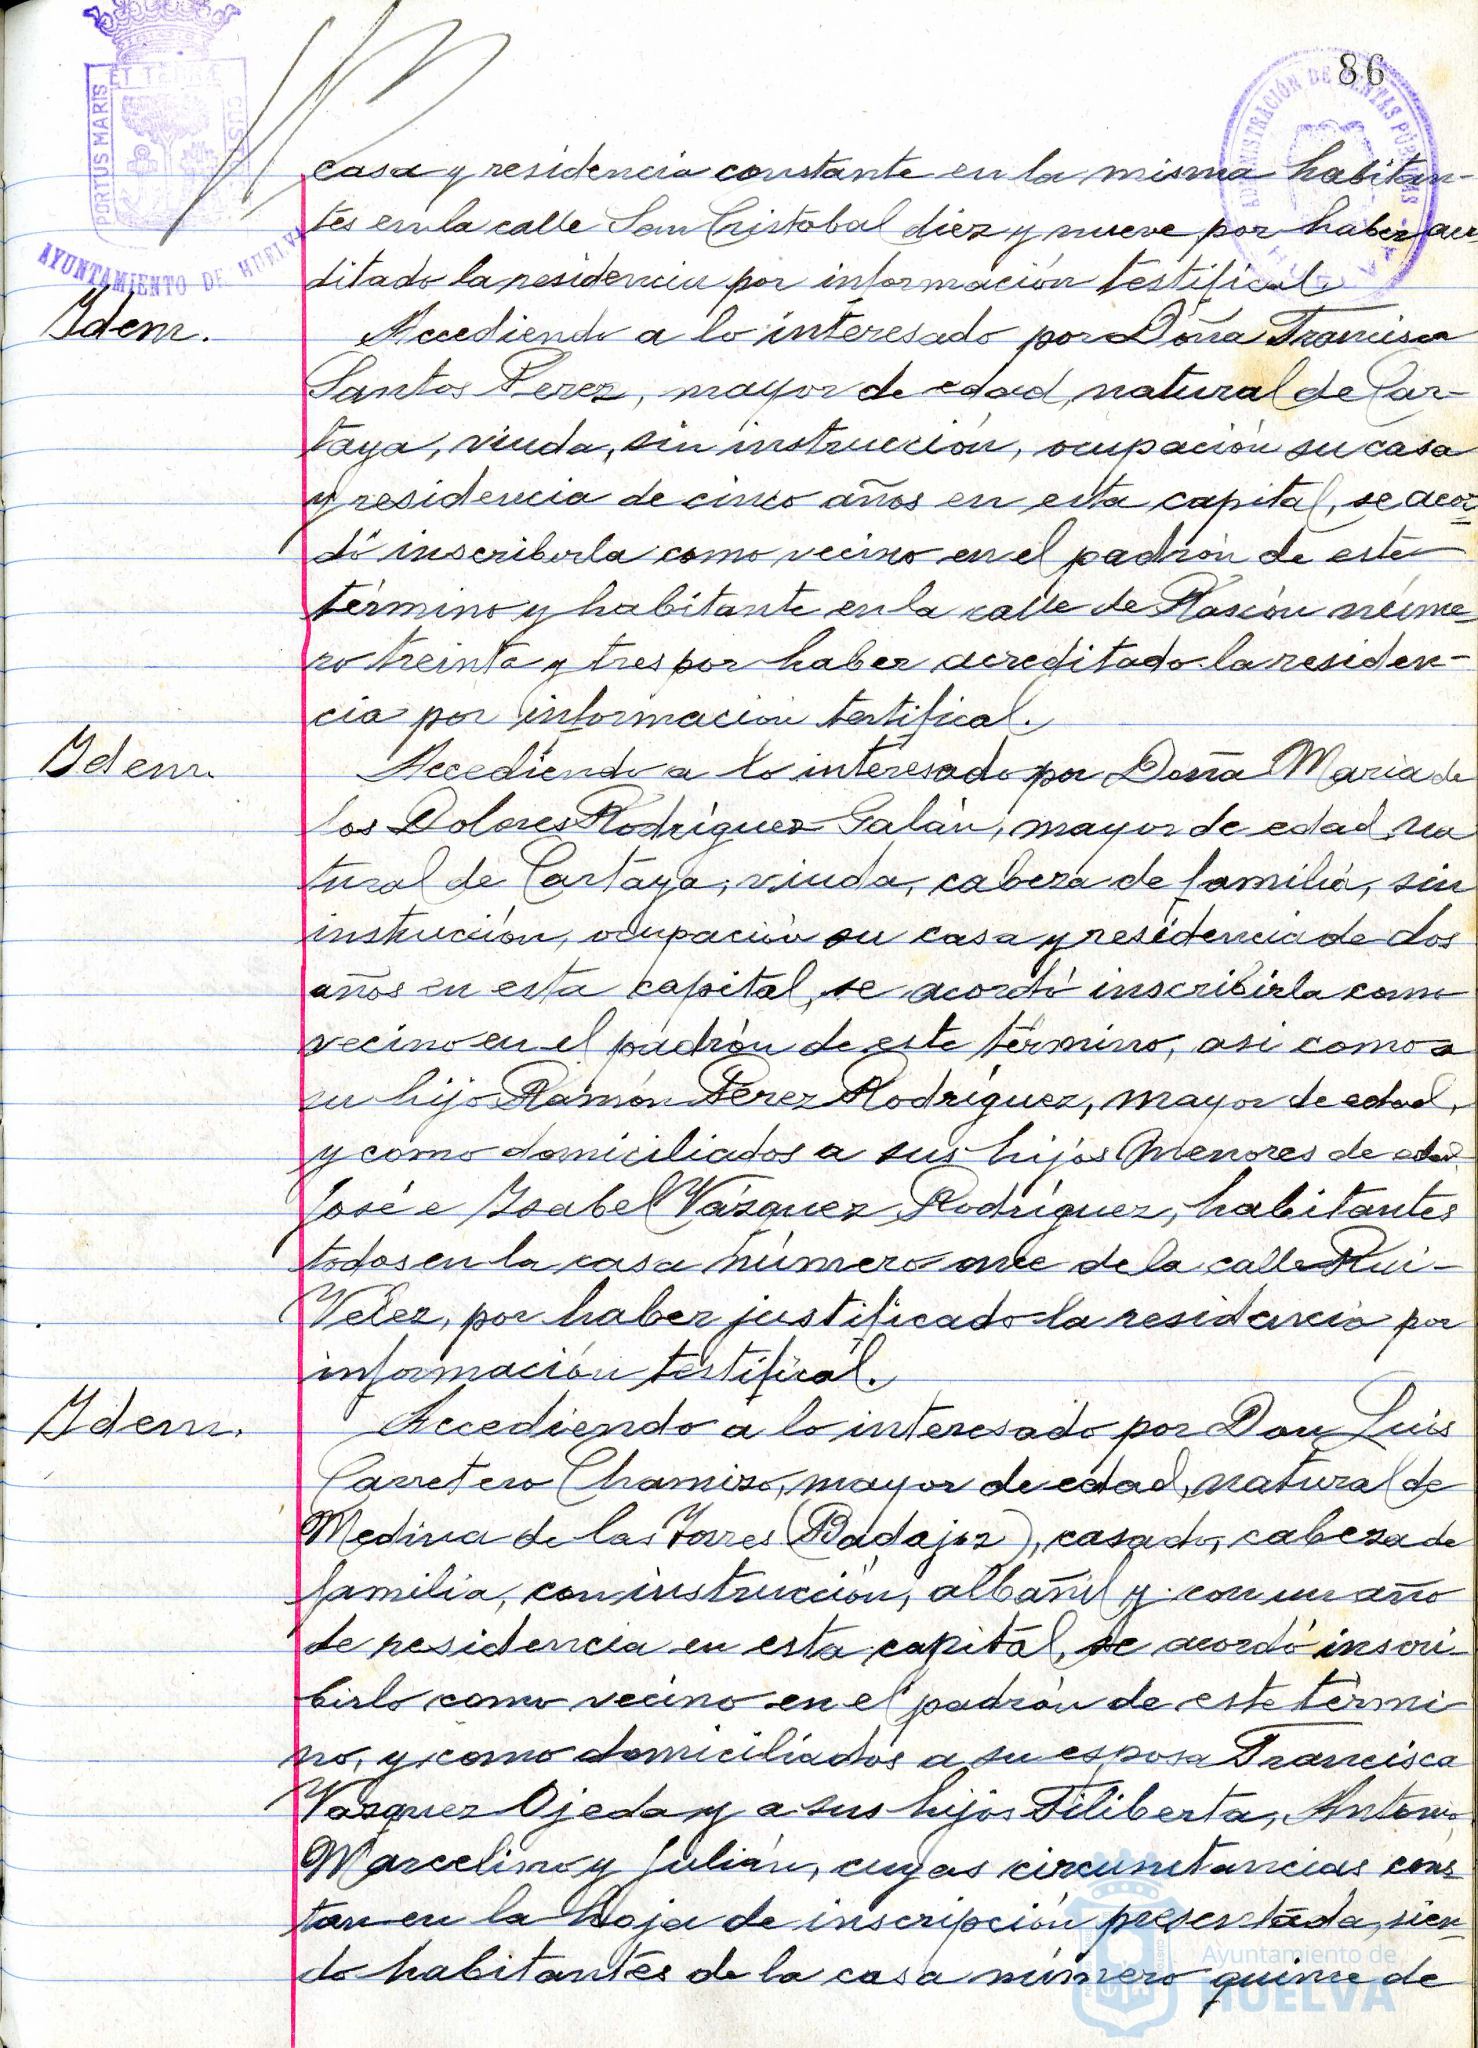 86
PORTUS MARIS ET TERRÆ CUSTODIA
AYUNTAMIENTO DE HUELVA
ADMINISTRACIÓN DE RENTAS PÚBLICAS
HUELVA
casa y residencia constante en la misma habitan-
tes en la calle San Cristobal diez y nueve por haber acre
ditado la residencia por información testifical.
Idem.
Accediendo a lo interesado por Doña Francisca
Santos Perez, mayor de edad, natural de Car-
taya, viuda, sin instrucción, ocupación su casa
y residencia de cinco años en esta capital, se acor
dó inscribirla como vecino en el padrón de este
término y habitante en la calle de Rascón núme-
ro treinta y tres por haber acreditado la residen-
cia por información testifical.
Idem.
Accediendo a lo interesado por Doña Maria de
los Dolores Rodríguez Galán, mayor de edad, na
tural de Cartaya, viuda, cabeza de familia, sin
instrucción, ocupación su casa y residencia de dos
años en esta capital, se acordó inscribirla como
vecino en el padrón de este término, asi como a
su hijo Ramón Pérez Rodríguez, mayor de edad,
y como domiciliados a sus hijos menores de edad
José e Isabel Vázquez Rodríguez, habitantes
todos en la casa número once de la calle Rui-
Velez, por haber justificado la residencia por
información testifical.
Idem.
Accediendo a lo interesado por Don Luis
Carretero Chamizo, mayor de edad, natural de
Medina de las Torres (Badajoz), casado, cabeza de
familia, con instrucción, albañil y con un año
de residencia en esta capital, se acordó inscri-
birlo como vecino en el padrón de este térmi
no, y como domiciliados a su esposa Francisca
Vazquez Ojeda y a sus hijos Filiberta, Antonio,
Marcelino y Julián, cuyas circunstancias cons
tan en la hoja de inscripción presentada, sien-
do habitantes de la casa número quince de
Ayuntamiento de
HUELVA